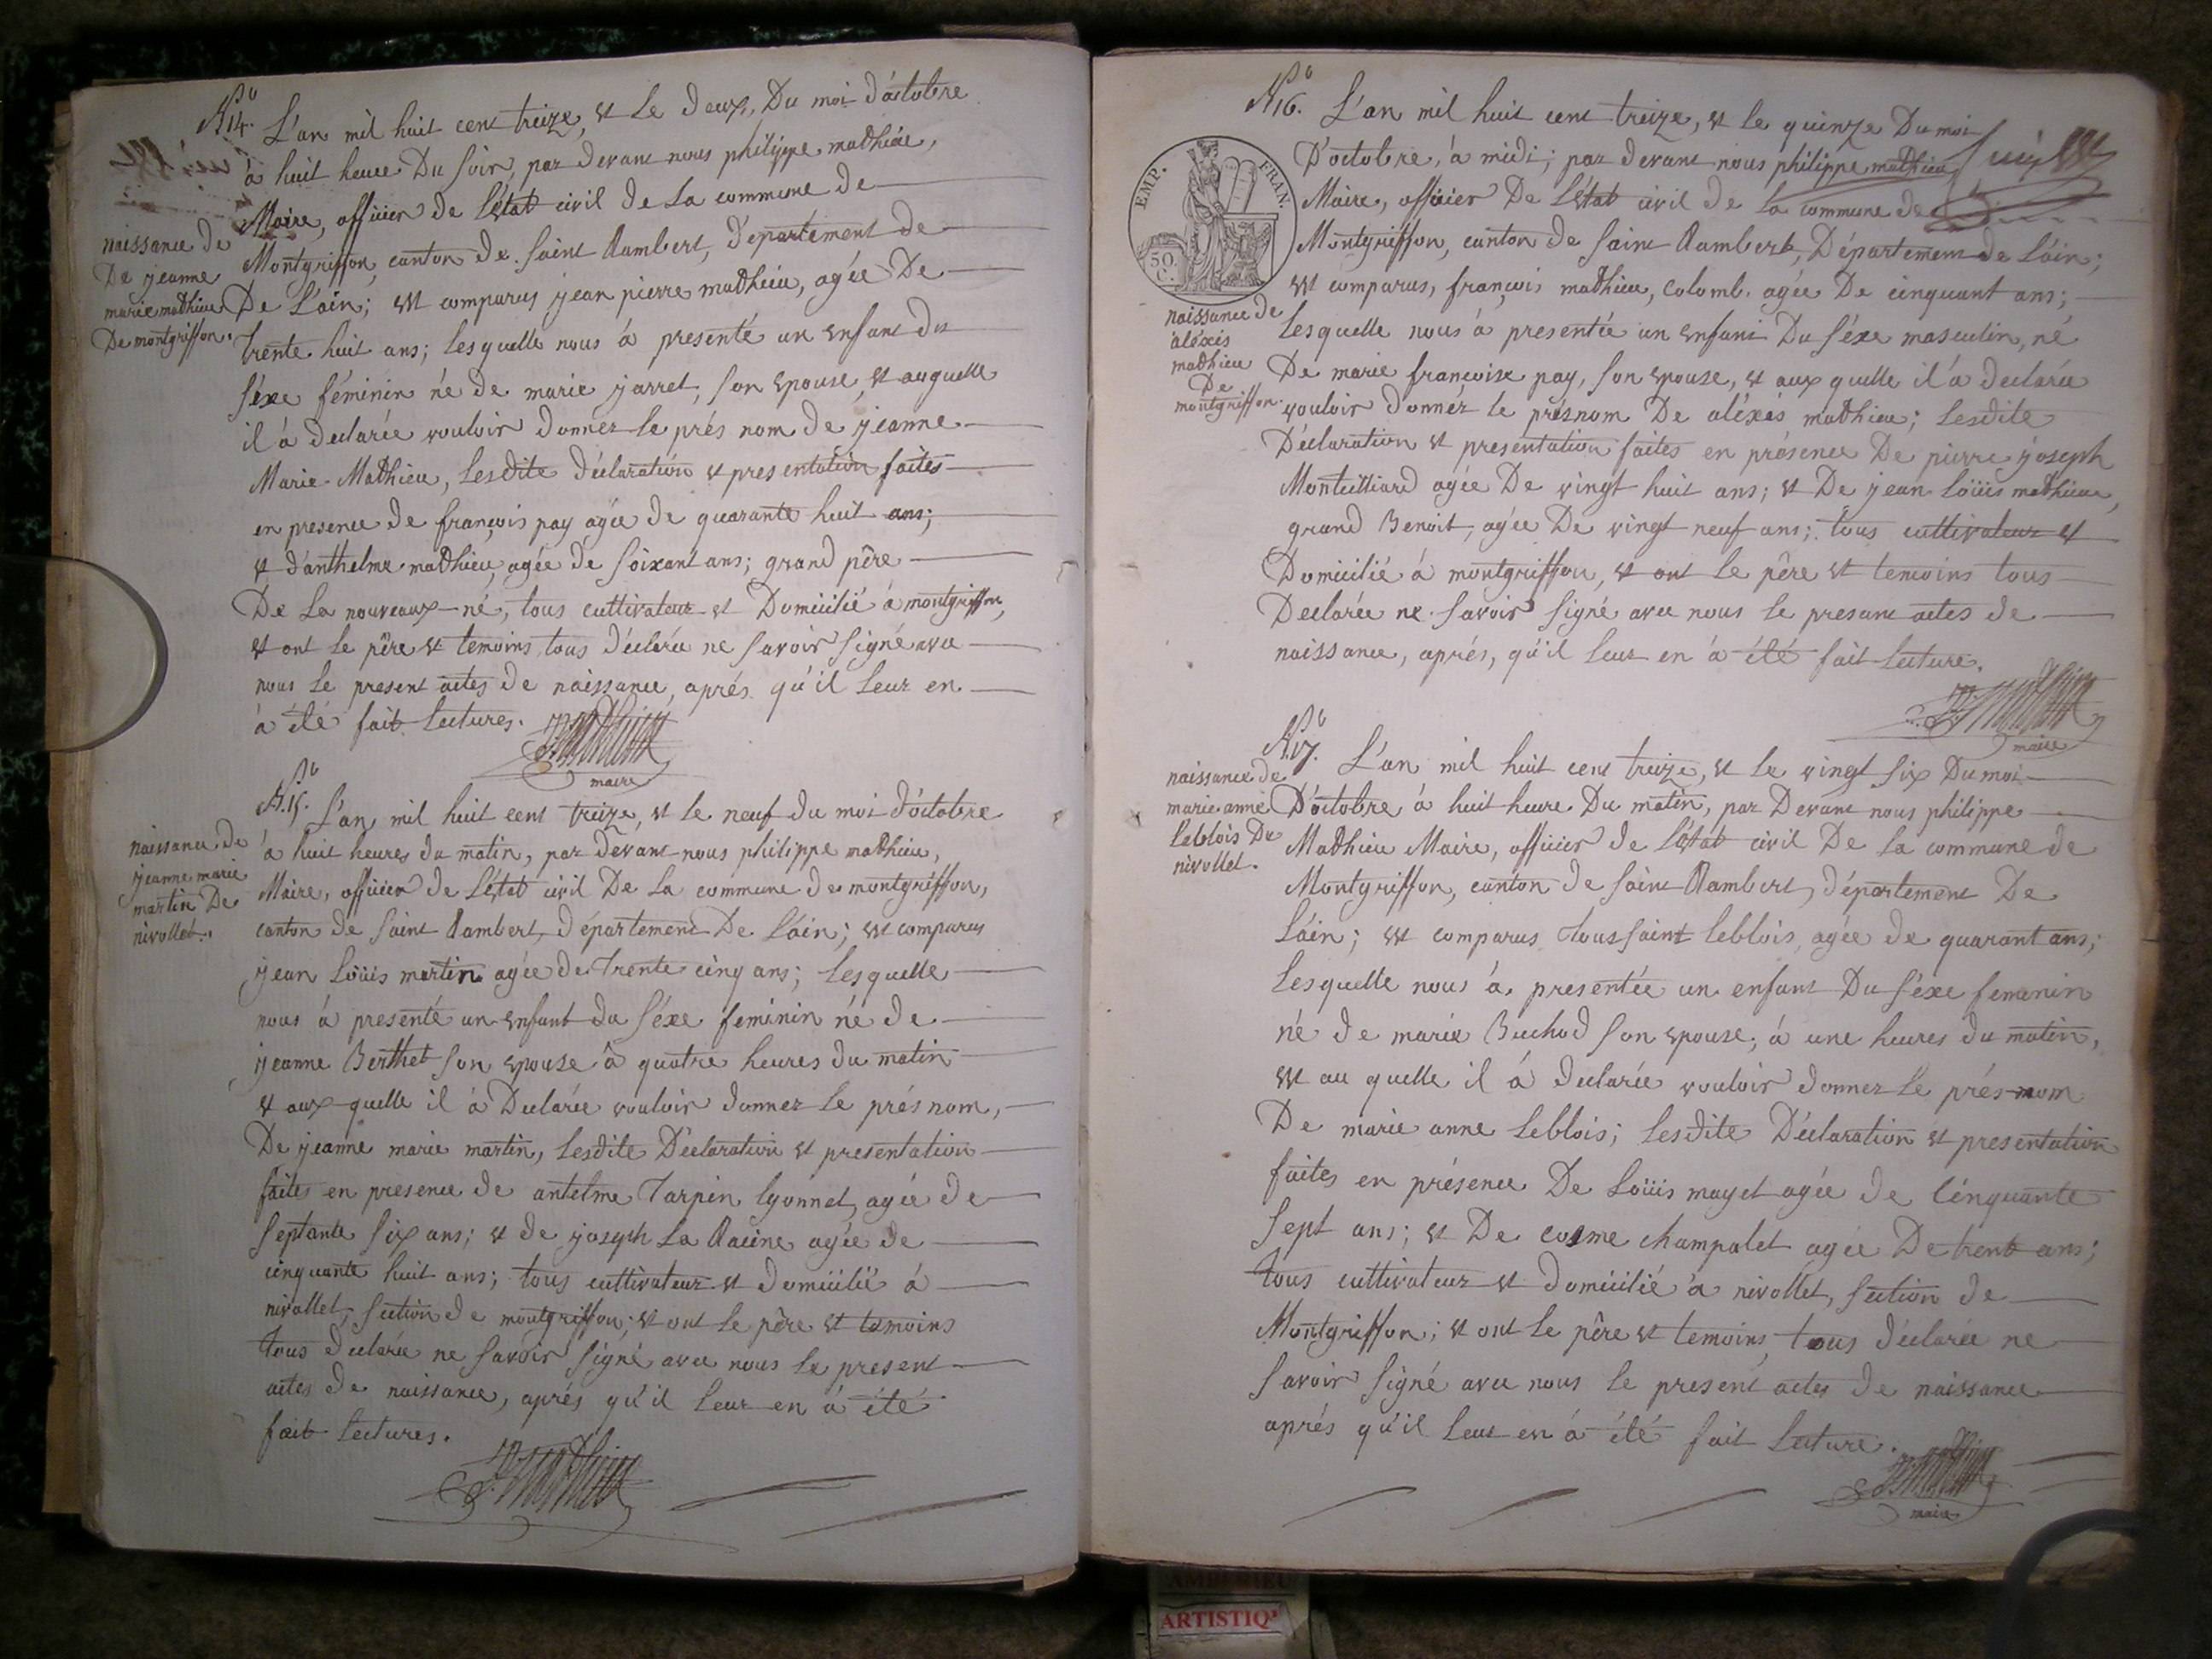 No 14.
L'an mil huit cent treize, et le deux, Du moi d'octobre
à huit heure Du soir, par devant nous philippe mathieu,
Maire, officier de l'état civil de La commune de
Montgriffon, canton de saint Rambert, département de
De L'ain; est comparus jean pierre mathieu, agée De
trente huit ans; lesquelle nous à presenté un enfant du
séxe féminin né de marie jarret, son epouse, et auquelle
il à declarée vouloir donner le prés nom de jeanne
Marie Mathieu, lesdite déclaration et presentation faites
en presence de françois pay agée de quarante huit ans;
et d'anthelme mathieu, agée de soixant ans; grand père
De La nouveaux-né, tous cultivateur et Domicilié à montgriffon,
et ont le père et temoins tous déclarée ne savoir signé avec
nous le present actes de naissance, aprés qu'il leur en
à été fait lectures.
maire
naissance de
De jeanne
marie mathieu
De montgriffon.
No 15.
L'an mil huit cent treize, et le neuf du moi d'octobre
à huit heures du matin, par devant nous philippe mathieu,
Maire, officier de l'état civil De La commune de montgriffon,
canton de saint Rambert, département De L'ain; est comparus
jean Loüis martin agée de trente cinq ans; lesquelle
nous à presenté un enfant du séxe feminin né de
jeanne Berthet son epouse à quatre heures du matin
et aux quelle il à Declarée vouloir donner le prés nom,
De jeanne marie martin, lesdite Déclaration et presentation
faites en presence de antelme Tarpin lyonnet, agée de
septante six ans; et de joseph La Racine agée de
cinquante huit ans; tous cultivateur et domicilié à
nivollet, section de montgriffon; et ont le père et temoins
tous declarée ne savoir signé avec nous le present
actes de naissance, aprés qu'il leur en à été
fait lectures.
naissance de
jeanne marie
martin De
nivollet.
No 16.
L'an mil huit cent treize, et le quinze Du moi
D'octobre, à midi; par devant nous philippe mathieu
Maire, officier De L'état civil de la commune de
Montgriffon, canton de saint Rambert, Département de L'ain;
est comparus, françois mathieu, colomb. agée De cinquant ans;
lesquelle nous à presentée un enfant Du séxe masculin, né
De marie françoise pay, son epouse, et aux quelle il à declarée
vouloir donnér le présnom De aléxis mathieu; lesdite
Déclaration et presentation faites en présence De pierre joseph
Montillard agée De vingt huit ans; et De jean Loüis mathieu,
grand Benoit, agée De vingt neuf ans; tous cultivateur et
Domicilié à montgriffon, et ont le père et temoins tous
Declarée ne savoir signé avec nous le presant actes de
naissance, aprés, qu'il leur en à été fait lecture.
maire
EMP. FRAN.
50. C.
naissance de
aléxis
mathieu
De
montgriffon.
No 17.
L'an mil huit cent treize, et le vingt six Du moi
D'octobre à huit heure Du matin, par Devant nous philippe
Mathieu Maire, officier de L'état civil De La commune de
Montgriffon, canton de saint Rambert, département De
L'ain; est comparus Toussaint leblois, agée de quarant ans;
lesquelle nous à presentée un enfant Du séxe femenin
né de marie Buchod son epouse, à une heures du matin,
est au quelle il à declarée vouloir donner le prés-nom
De marie anne leblois; lesdite Déclaration et presentation
faites en présence De Loüis mayet agée de cinquante
sept ans; et De cosme champalet agée De trent ans;
tous cultivateur et domicilié à nivollet, section de
Montgriffon; et ont le père et temoins, tous déclarée ne
savoir signé avec nous le present actes de naissance
aprés qu'il leur en à été fait lecture.
maire
naissance de
marie anne
leblois De
nivollet.
ARTISTIQ'